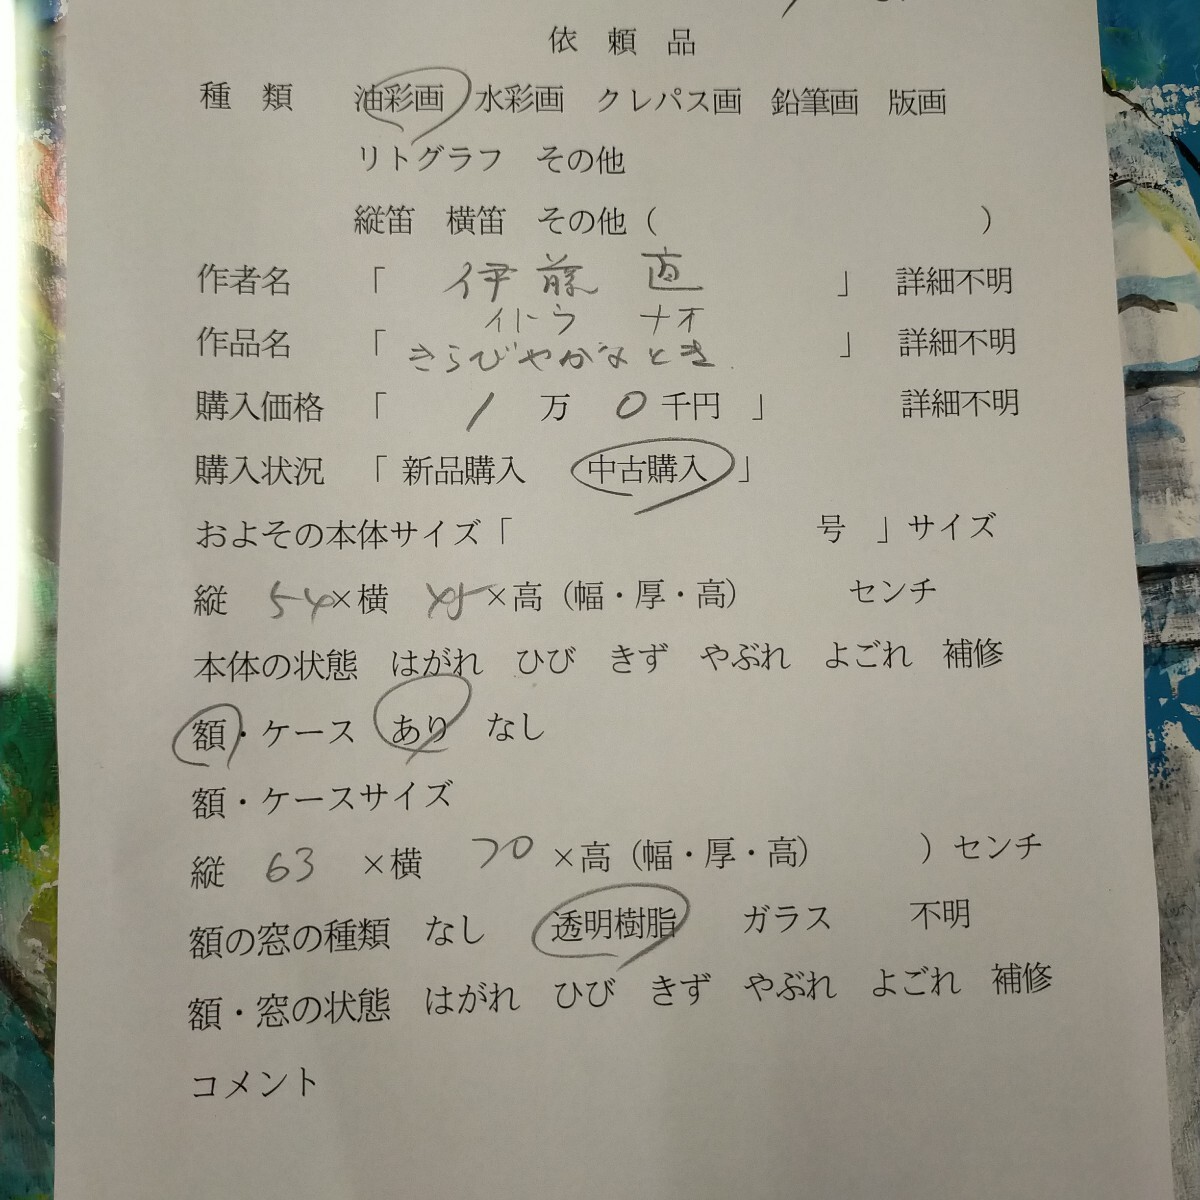 依頼品
種類 油彩画 水彩画 クレパス画 鉛筆画 版画
リトグラフ その他
縦笛 横笛 その他（ ）
作者名 「 伊藤 直 」 詳細不明
イトウ ナオ
作品名 「 きらびやかなとき 」 詳細不明
購入価格 「 1 万 0 千円 」 詳細不明
購入状況 「 新品購入 中古購入 」
およその本体サイズ「 号 」サイズ
縦 54 ×横 45 ×高（幅・厚・高） センチ
本体の状態 はがれ ひび きず やぶれ よごれ 補修
額・ケース あり なし
額・ケースサイズ
縦 63 ×横 70 ×高（幅・厚・高） ）センチ
額の窓の種類 なし 透明樹脂 ガラス 不明
額・窓の状態 はがれ ひび きず やぶれ よごれ 補修
コメント